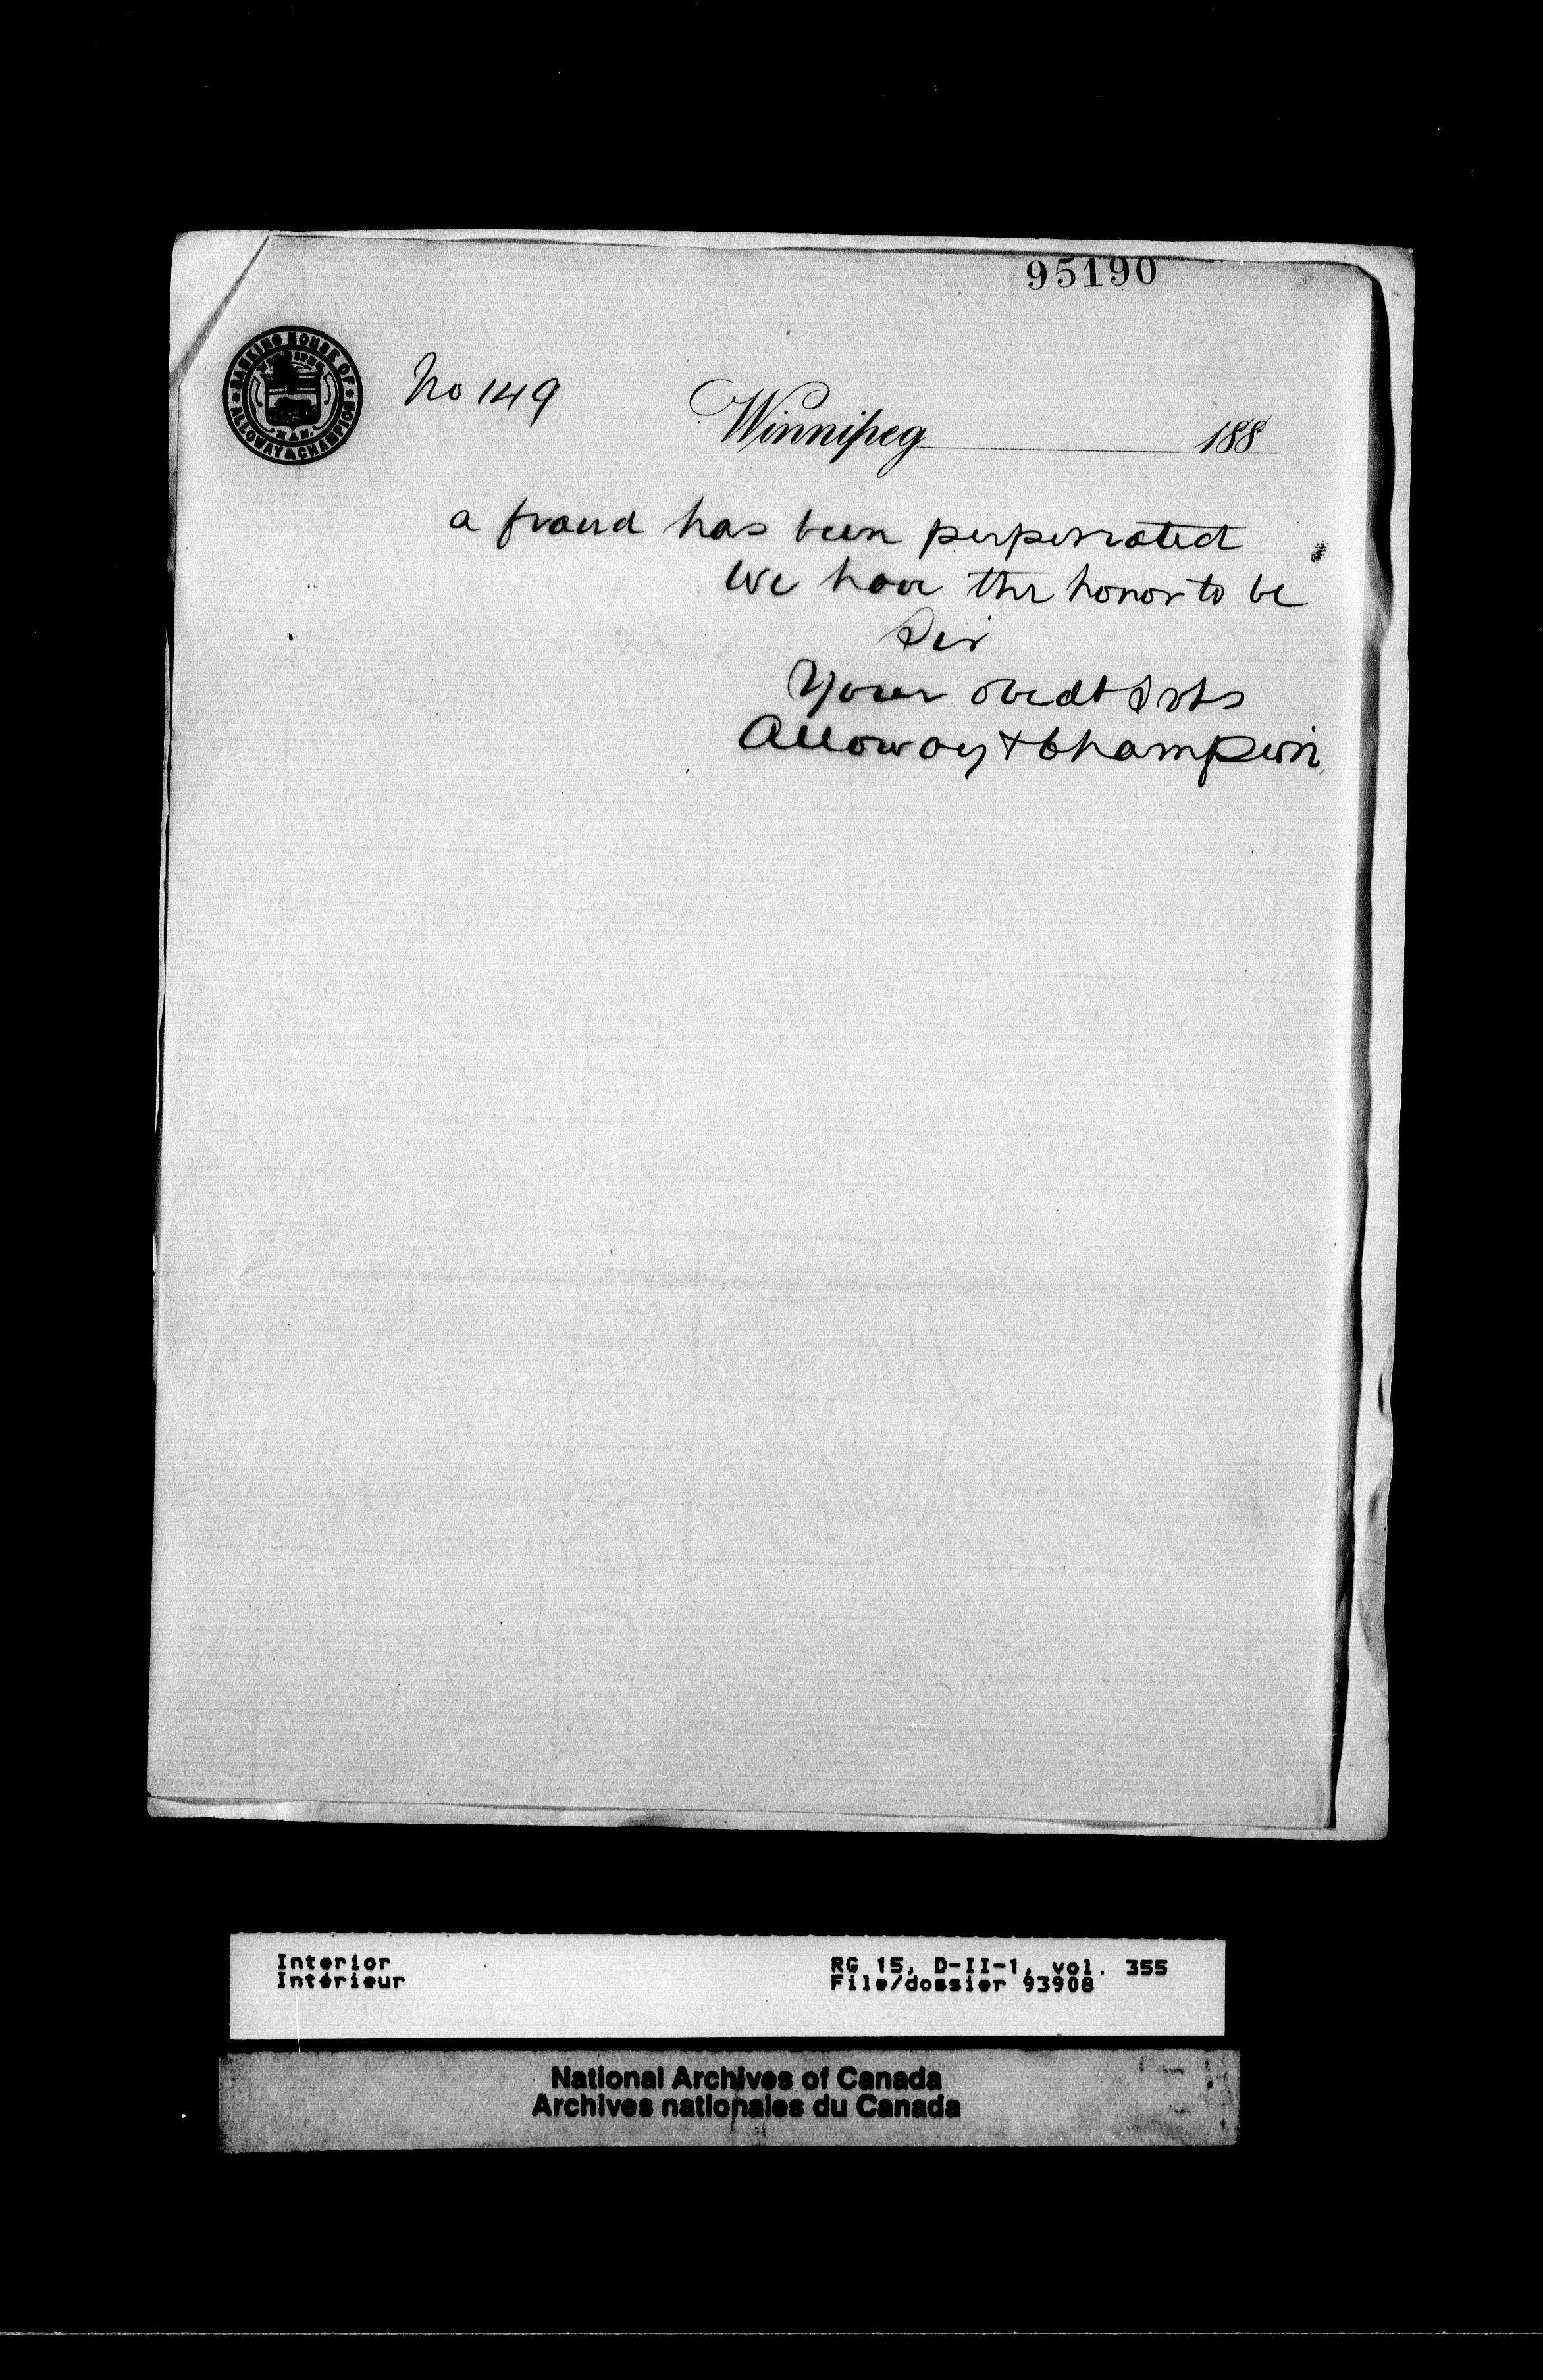 95190
BANKING HOUSE OF
WINNIPEG
MAN.
ALLOWAY & CHAMPION
No 149
Winnipeg 188
a fraud has been perpetrated
We have the honor to be
Sir
Your obedt Svts
Alloway + Champion
Interior RG 15, D-II-1, vol. 355
Intérieur File/dossier 93908
National Archives of Canada
Archives nationales du Canada